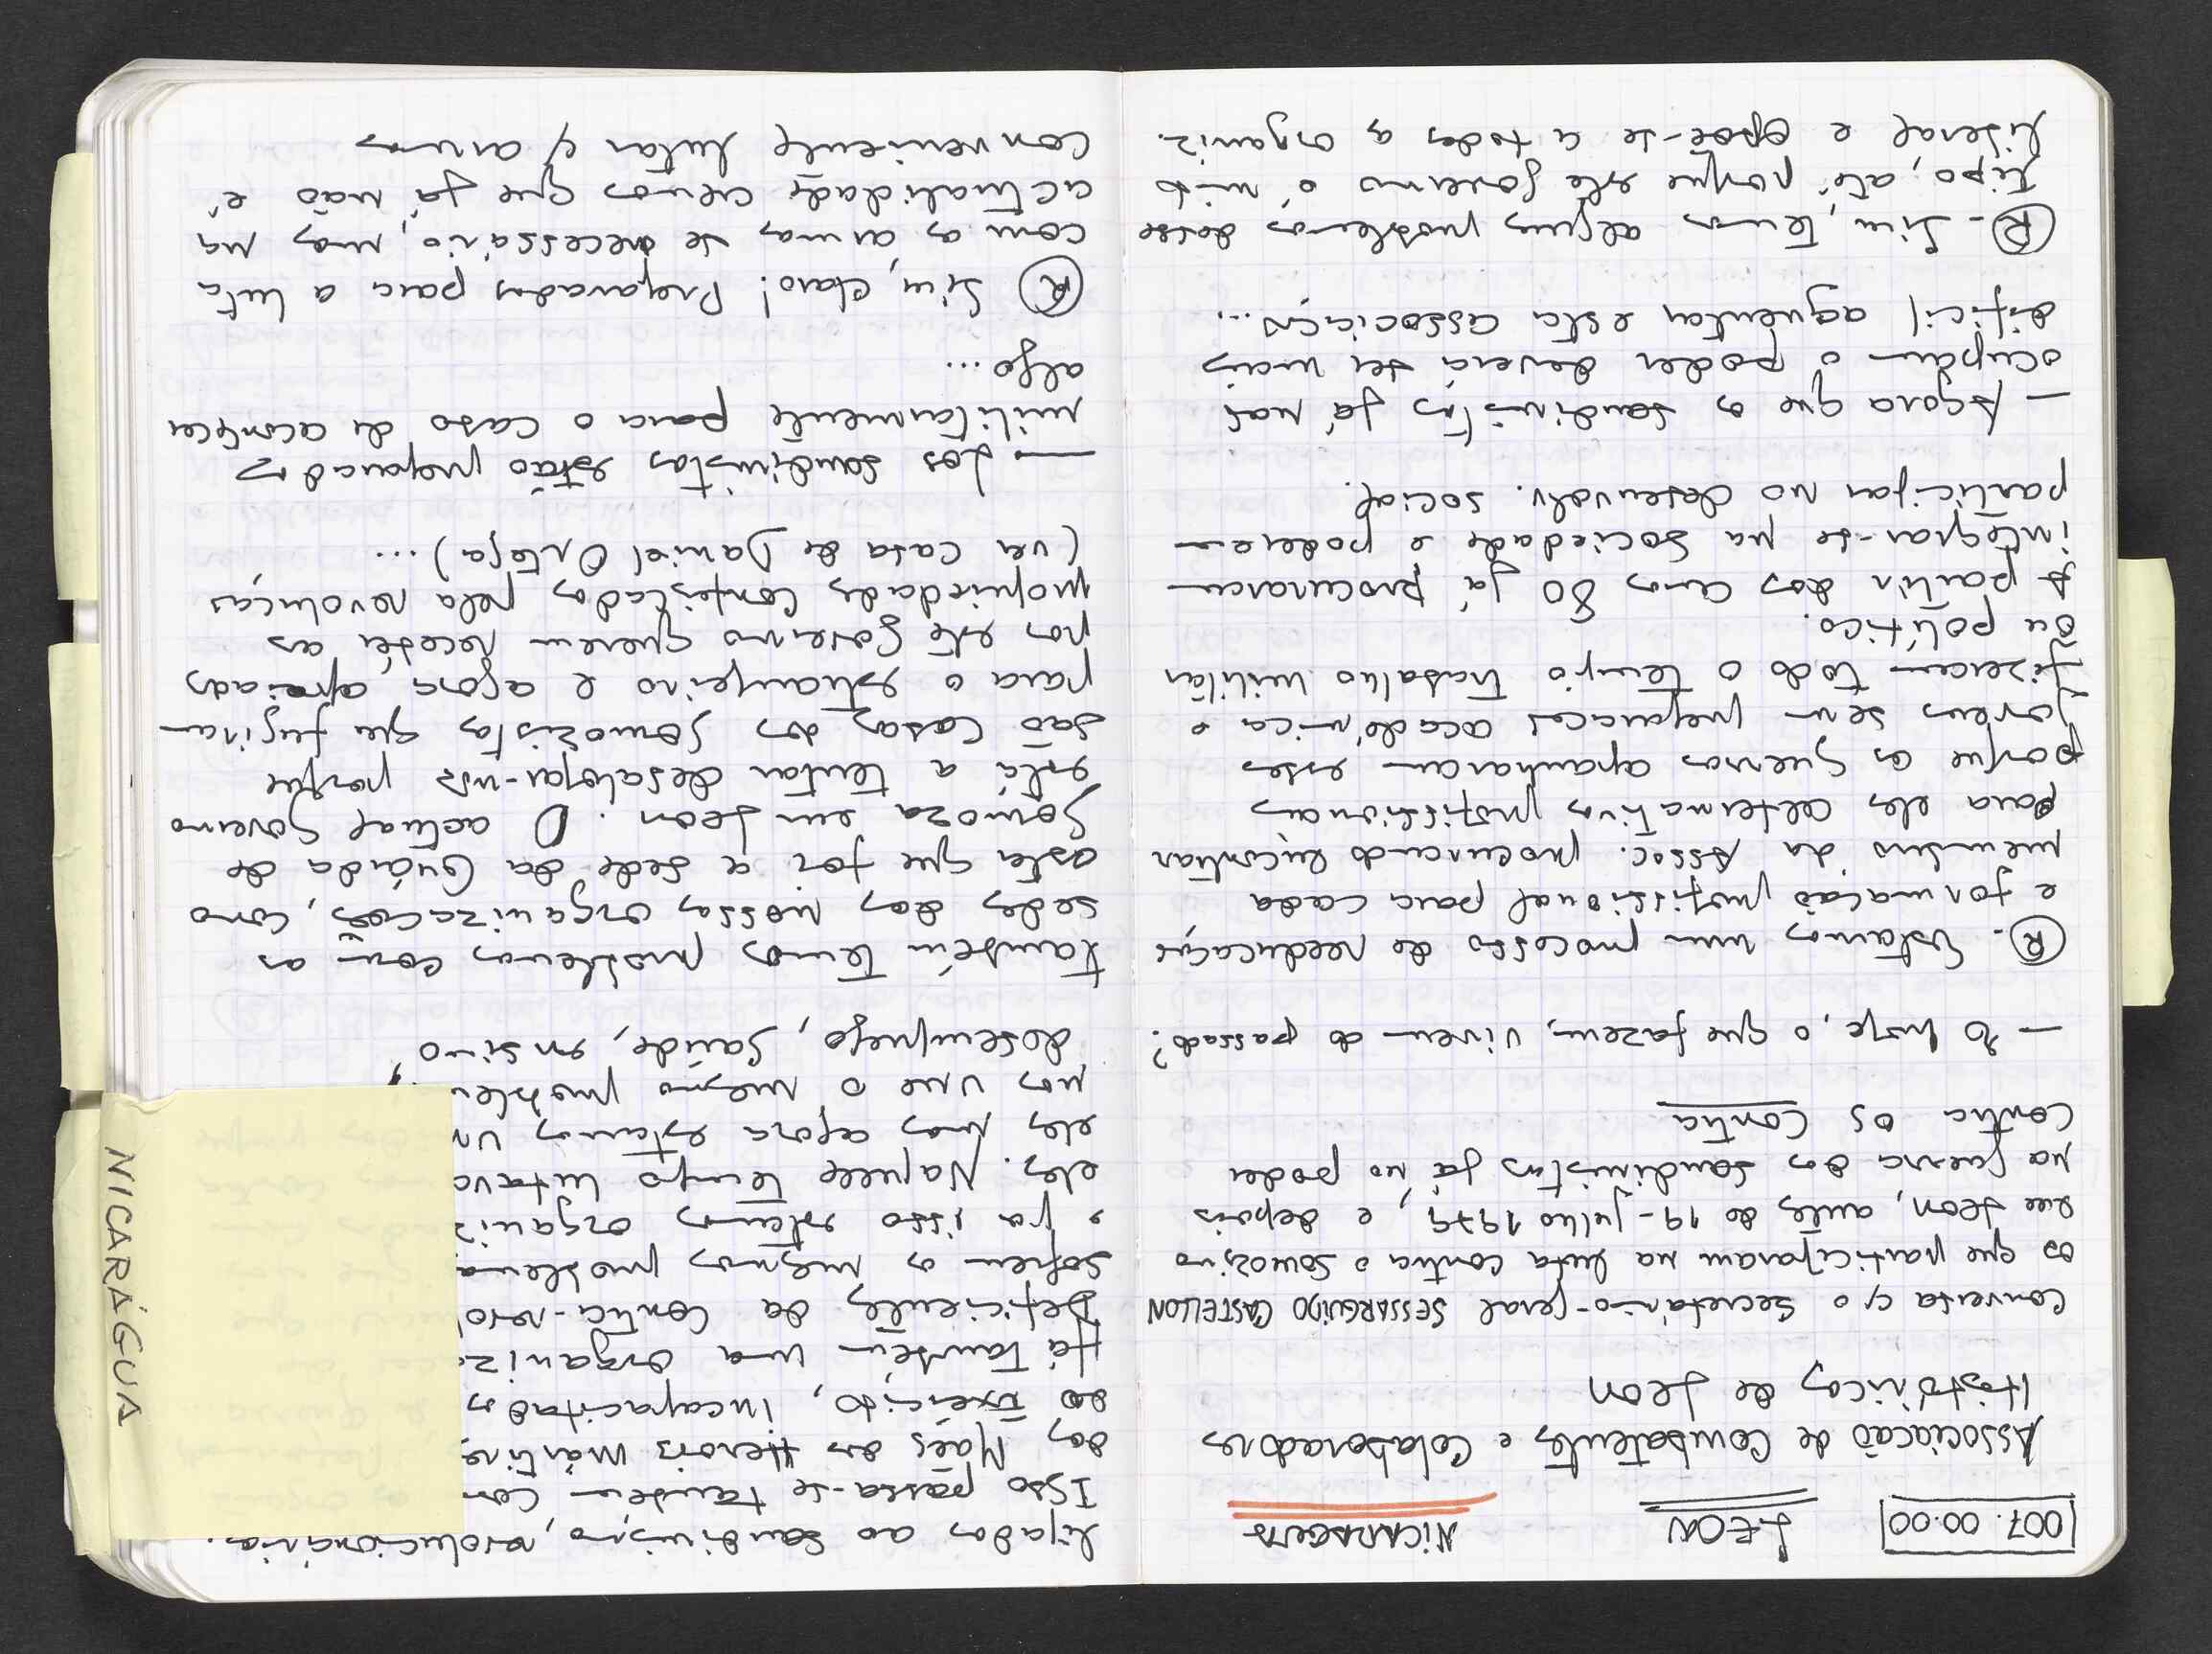 007.00.00 LEON NICARAGUA
Associação de Combatentes e Colaboradores
Históricos de Leon
Conversa c/ o secretário-geral SESSARGUIDO CASTELLON
os que participaram na luta contra o somozismo
em Leon, antes de 19-julho 1979, e depois
na guerra dos sandinistas já no poder
contra os contra
— E hoje, o que fazem, vivem do passado?
(R) - Estamos num processo de reeducação
e formação profissional para cada
membro da Assoc. procurando encontrar
para eles alternativas profissionais
porque as guerras apanharam esses
jovens sem preparação académica e
fizeram todo o tempo trabalho militar
ou político.
A partir dos anos 80 já procuraram
integrar-se na sociedade e poderem
participar no desenvolv. social.
— Agora que os sandinistas já não
ocupam o poder deverá ser mais
dificil aguentar esta associação...
(R) - Sim, temos alguns problemas desse
tipo, até porque este governo é mto
liberal e opoe-se a todas as organiz.
ligados ao sandinismo, revolucionárias.
Isso passa-se também com
das Mães dos Herois Mártires
do Exército, incapacitados
Há também uma organiz
Deficientes da contra-revo
sofrem os mesmos problema
e por isso estamos organiz
eles. Naquele tempo lutava
eles mas agora estamos un
nos une o mesmo problem
desemprego, saúde, ensino,
Também temos problemas com as
sedes das nossas organizações, como
esta que foi a sede da Guarda de
Somoza em Leon. O actual Governo
está a tentar desalojar-nos porque
são casas dos somozistas que fugiram
para o estrangeiro e agora, apoiados
por este Governo querem receber as
propriedades confiscadas pela revolução
(ver casa de Daniel Ortega) ...
— Los sandinistas estão preparados
militarmente para o caso de acontecer
algo...
(R) Sim, claro! Preparados para a luta
com as armas, se necessário, mas na
actualidade cremos que já não é
conveniente lutar c/ armas
NICARÁGUA